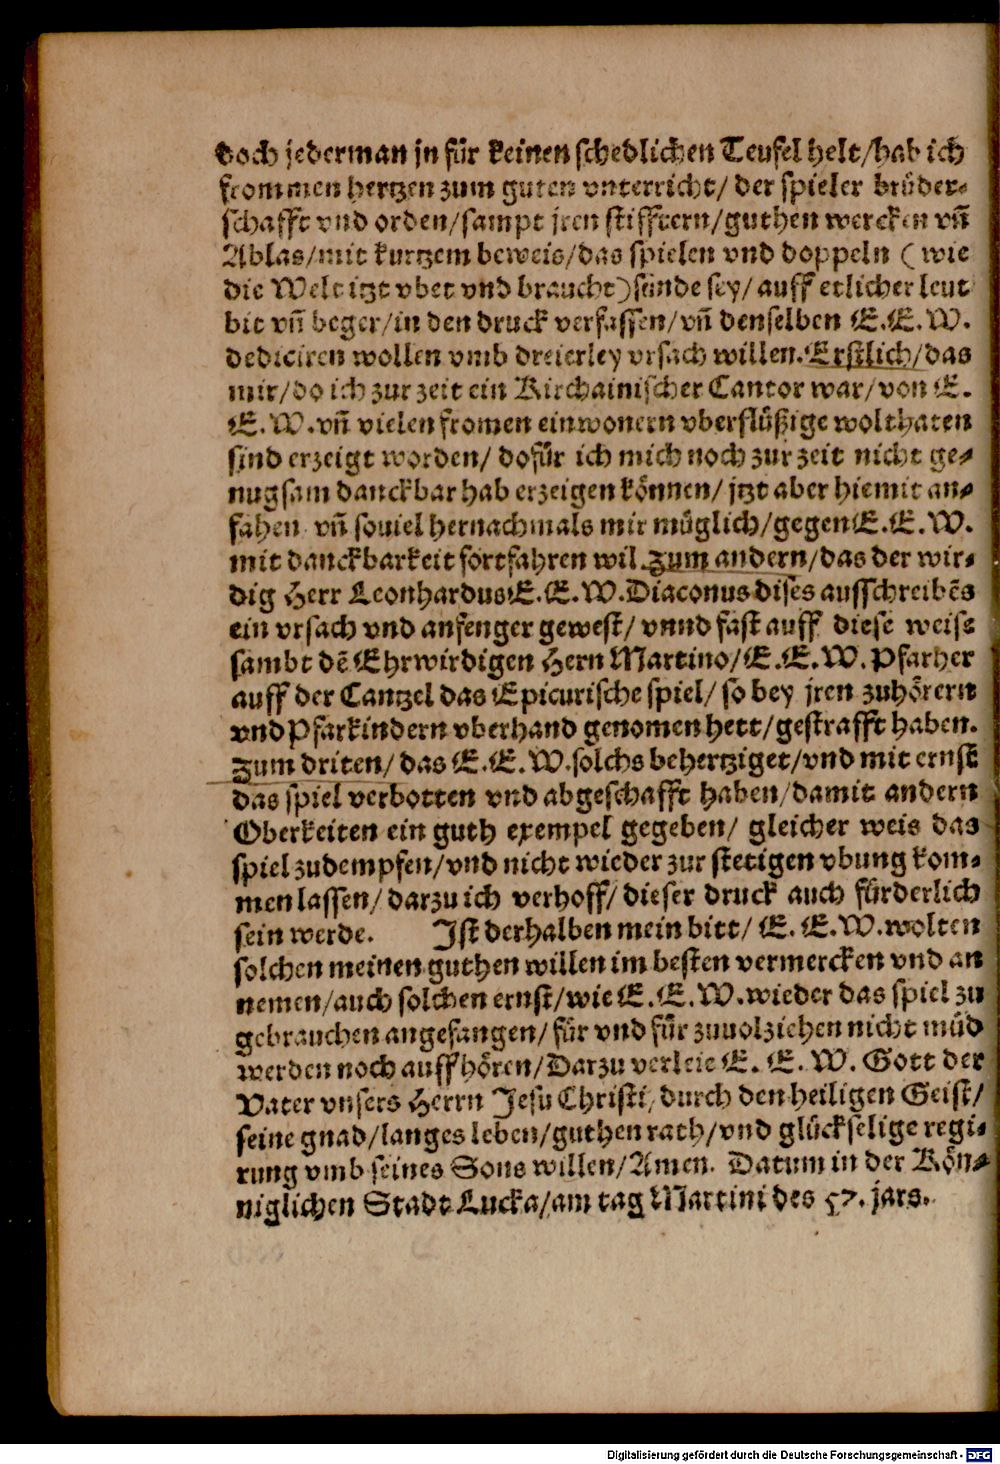 doch jederman jn für keinen schedlichen Teufel helt/hab ich
frommen hertzen zum guten vnterricht/ der spieler brüder-
schafft vnd orden/sampt jren stifftern/guthen wercken vñ
Ablas/mit kurtzem beweis/das spielen vnd doppeln (wie
die Welt itzt vbet vnd braucht)sünde sey/ auff etlicher leut
bit vñ beger/in den druck verfassen/vñ denselben E.E.W.
dediciren wollen vmb dreierley vrsach willen. Erstlich/das
mir/do ich zur zeit ein Kirchainischer Cantor war/von E.
E.W.vñ vielen fromen einwonern vberflüßige wolthaten
sind erzeigt worden/ dofür ich mich noch zur zeit nicht ge-
nugsam danckbar hab erzeigen können/ jtzt aber hiemit an-
fahen vñ souiel hernachmals mir müglich/gegen E.E.W.
mit danckbarkeit fortfahren wil. Zum andern/das der wir-
dig Herr Leonhardus E.E.W.Diaconus dises ausschreibẽs
ein vrsach vnd anfenger gewest/ vnnd fast auff diese weise
sambt dẽ Ehrwirdigen Hern Martino/E.E.W.Pfarher
auff der Cantzel das Epicurische spiel/ so bey jren zuhörern
vnd Pfarkindern vberhand genomen hett/gestrafft haben.
Zum driten/ das E.E.W.solchs behertziget/vnd mit ernst
das spiel verbotten vnd abgeschafft haben/damit andern
Oberkeiten ein guth exempel gegeben/ gleicher weis das
spiel zudempfen/vnd nicht wieder zur stetigen vbung kom-
men lassen/ darzu ich verhoff/ dieser druck auch fürderlich
sein werde. Jst derhalben mein bitt/ E. E.W.wolten
solchen meinen guthen willen im besten vermercken vnd an
nemen/auch solchen ernst/wie E.E.W.wieder das spiel zu
gebrauchen angefangen/ für vnd für zuuolziehen nicht müd
werden noch auffhören/Darzu verleie E. E. W. Gott der
Vater vnsers Herrn Jesu Christi/durch den heiligen Geist/
seine gnad/langes leben/guthen rath/vnd glückselige regi-
rung vmb seines Sons willen/Amen. Datum in der Kön-
niglichen Stadt Lucka/am tag Martini des 57. jars.
Digitalisierung gefördert durch die Deutsche Forschungsgemeinschaft - DFG